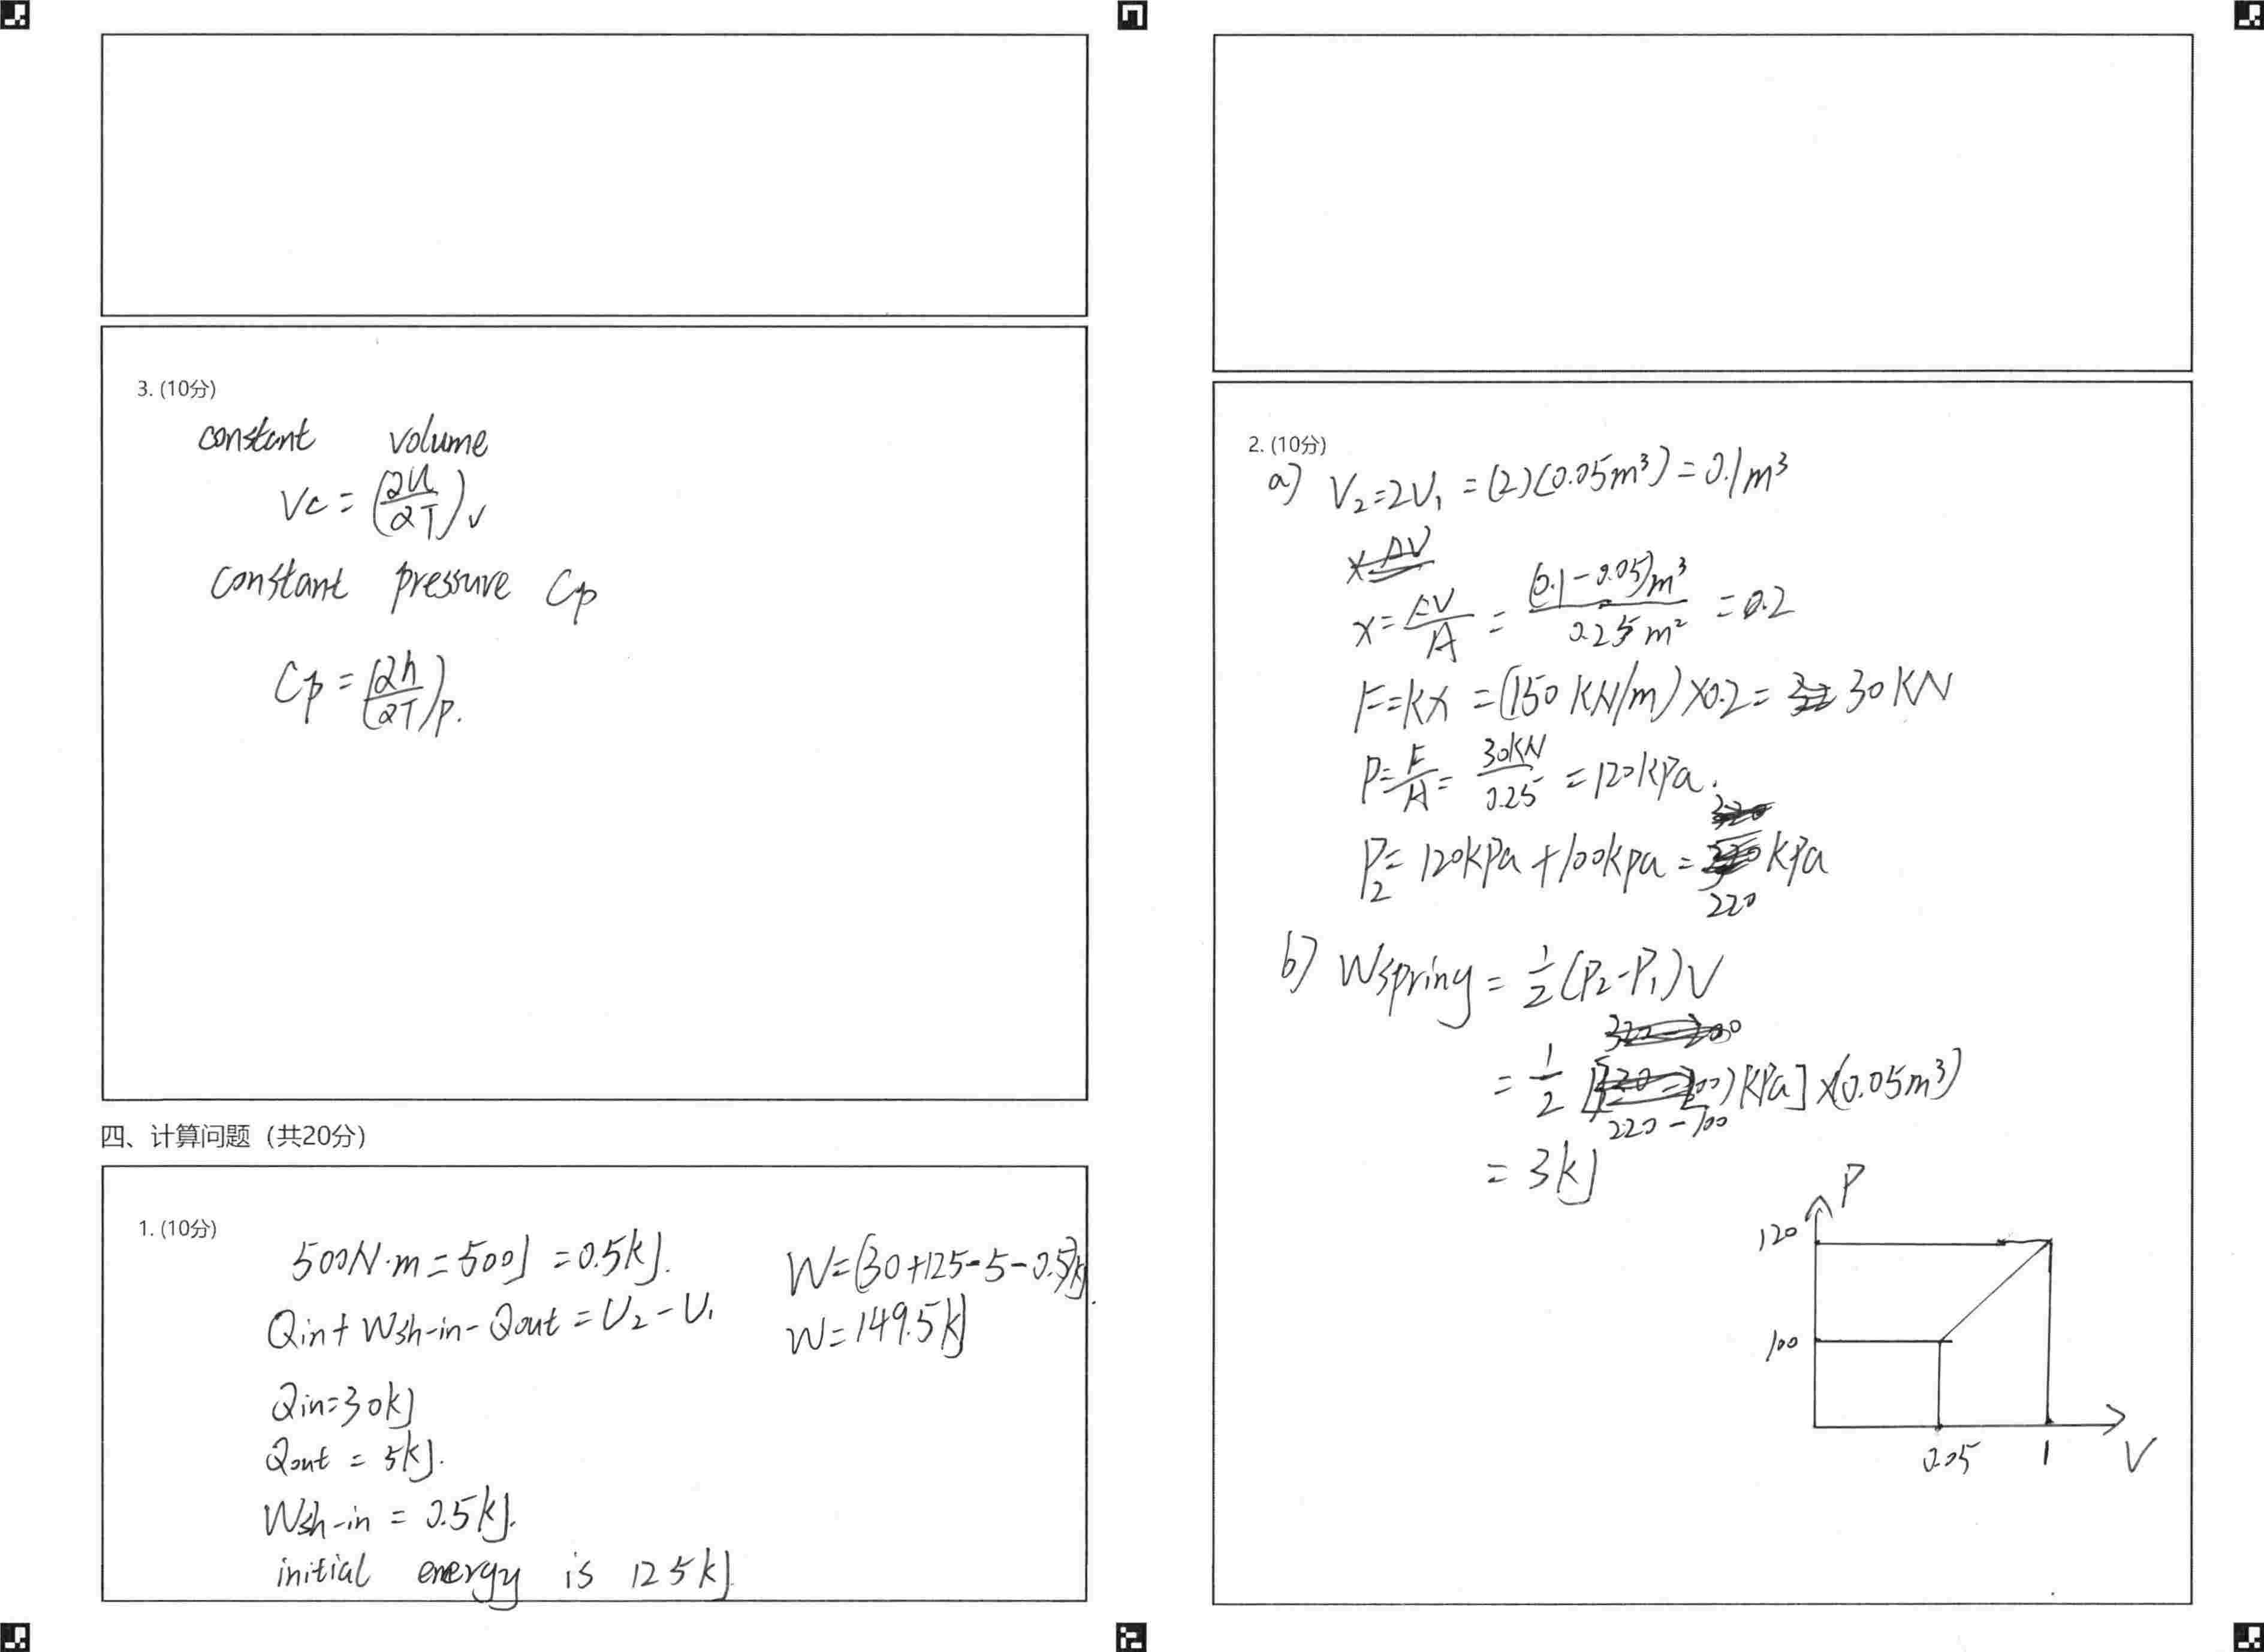 3. (10分)
constant volume
Vc = (∂u/∂T)v
constant pressure Cp
Cp = (∂h/∂T)p.
四、计算问题（共20分）
1. (10分)
500N·m = 500J = 0.5kJ.
Qin + Wsh-in - Qout = U₂ - U₁
Qin = 30kJ
Qout = 5kJ.
Wsh-in = 0.5kJ.
initial energy is 125kJ
W = (30+125-5-0.5)kJ.
W = 149.5kJ
2. (10分)
a) V₂ = 2V₁ = (2)(0.05m³) = 0.1m³
x = ΔV/A = (0.1-0.05)m³/0.25m² = 0.2
F = kx = (150KN/m)×0.2 = 30KN
P = F/A = 30KN/0.25 = 120kPa.
P₂ = 120kPa + 100kpa = 220 kPa
b) Wspring = 1/2 (P₂-P₁)V
= 1/2 [(220-100)kPa]×(0.05m³)
= 3kJ
P
120
100
0.05 1 V